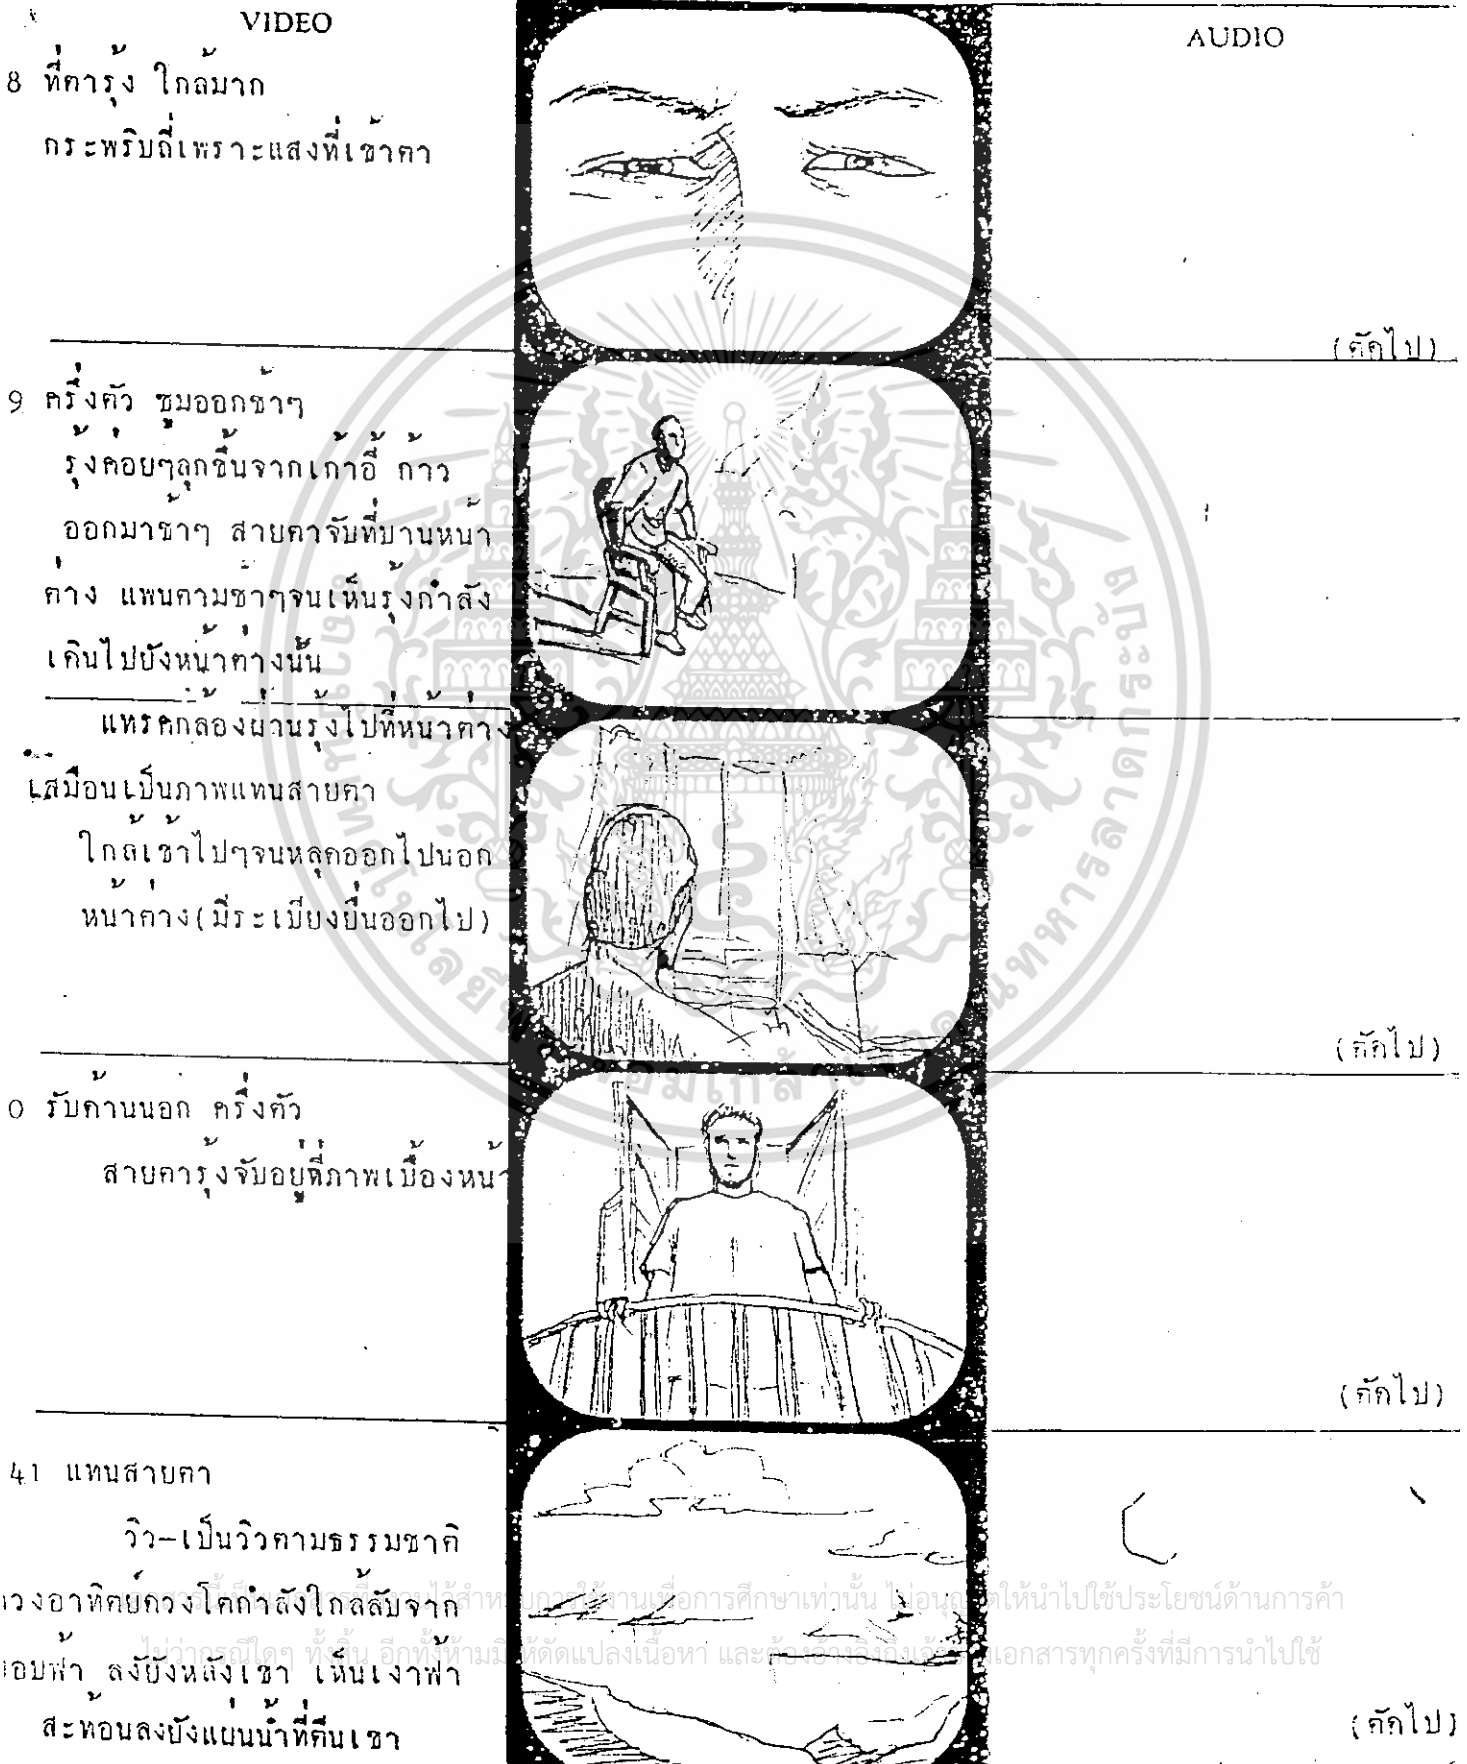 VIDEO
AUDIO
8 ที่ตารุ้ง ใกล้มาก
กระพริบถี่เพราะแสงที่เข้าตา
(ตัดไป)
9 ครึ่งตัว ซูมออกช้าๆ
รุ้งค่อยๆลุกขึ้นจากเก้าอี้ ก้าว
ออกมาช้าๆ สายตาจับที่บานหน้า
ต่าง แพนตามช้าๆจนเห็นรุ้งกำลัง
เดินไปยังหน้าต่างนั้น
แทรคกล้องผ่านรุ้งไปที่หน้าต่าง
เสมือนเป็นภาพแทนสายตา
ใกล้เข้าไปๆจนหลุดออกไปนอก
หน้าต่าง(มีระเบียงยื่นออกไป)
(ตัดไป)
0 รับด้านนอก ครึ่งตัว
สายตารุ้งจับอยู่ที่ภาพเบื้องหน้า
(ตัดไป)
41 แทนสายตา
วิว-เป็นวิวตามธรรมชาติ
ดวงอาทิตย์ดวงโตกำลังใกล้ลับจาก
ขอบฟ้า ลงยังหลังเขา เห็นเงาฟ้า
สะท้อนลงยังแผ่นน้ำที่ตีนเขา
(ตัดไป)
เอกสารนี้เป็นเอกสารที่ใช้งานได้สำหรับการใช้งานเพื่อการศึกษาเท่านั้น ไม่อนุญาตให้นำไปใช้ประโยชน์ด้านการค้า
ไม่ว่ากรณีใดๆ ทั้งสิ้น อีกทั้งห้ามมิให้ดัดแปลงเนื้อหา และต้องอ้างอิงถึงเจ้าของเอกสารทุกครั้งที่มีการนำไปใช้